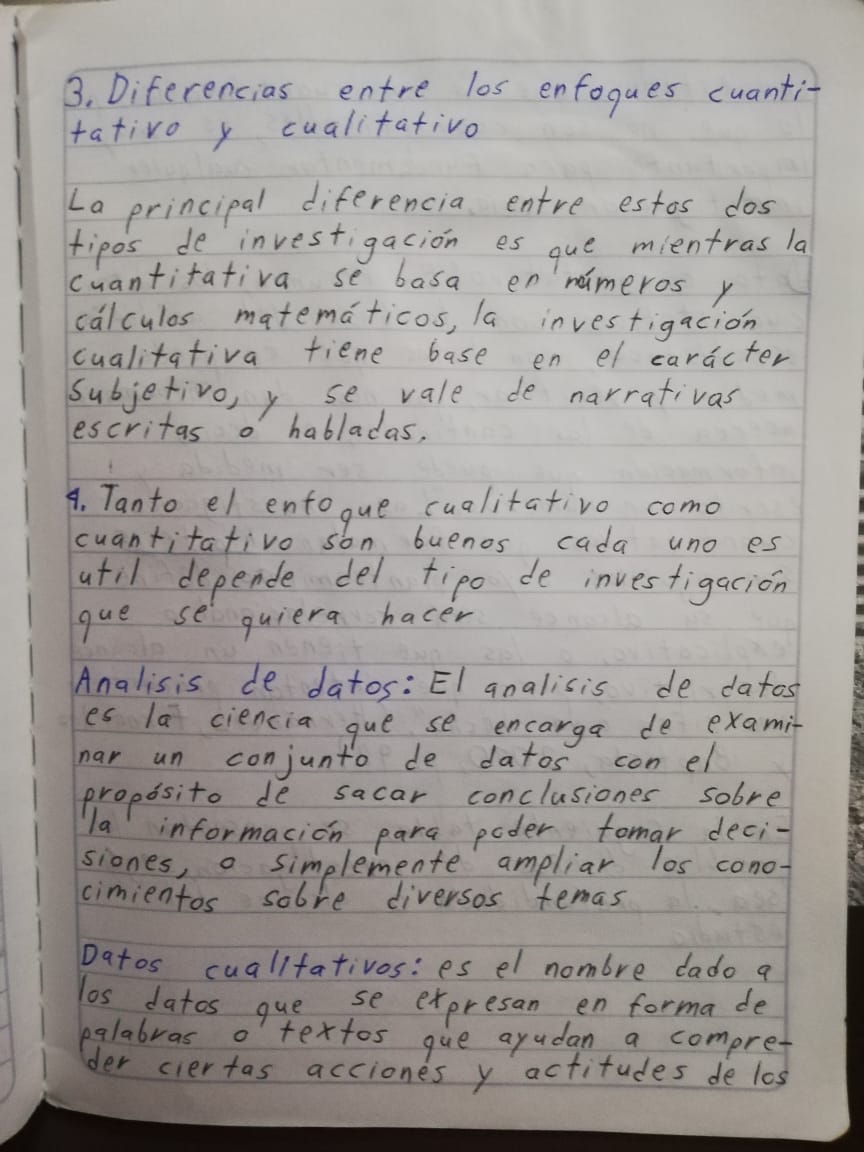 3. Diferencias entre los enfoques cuanti-
tativo y cualitativo
La principal diferencia entre estos dos
tipos de investigación es que mientras la
cuantitativa se basa en números y
cálculos matemáticos, la investigación
cualitativa tiene base en el carácter
subjetivo, y se vale de narrativas
escritas o habladas.
4. Tanto el enfoque cualitativo como
cuantitativo son buenos cada uno es
util depende del tipo de investigación
que se quiera hacer
Analisis de datos: El analisis de datos
es la ciencia que se encarga de exami-
nar un conjunto de datos con el
propósito de sacar conclusiones sobre
la información para poder tomar deci-
siones, o simplemente ampliar los cono-
cimientos sobre diversos temas
Datos cualitativos: es el nombre dado a
los datos que se expresan en forma de
palabras o textos que ayudan a compre-
der ciertas acciones y actitudes de los